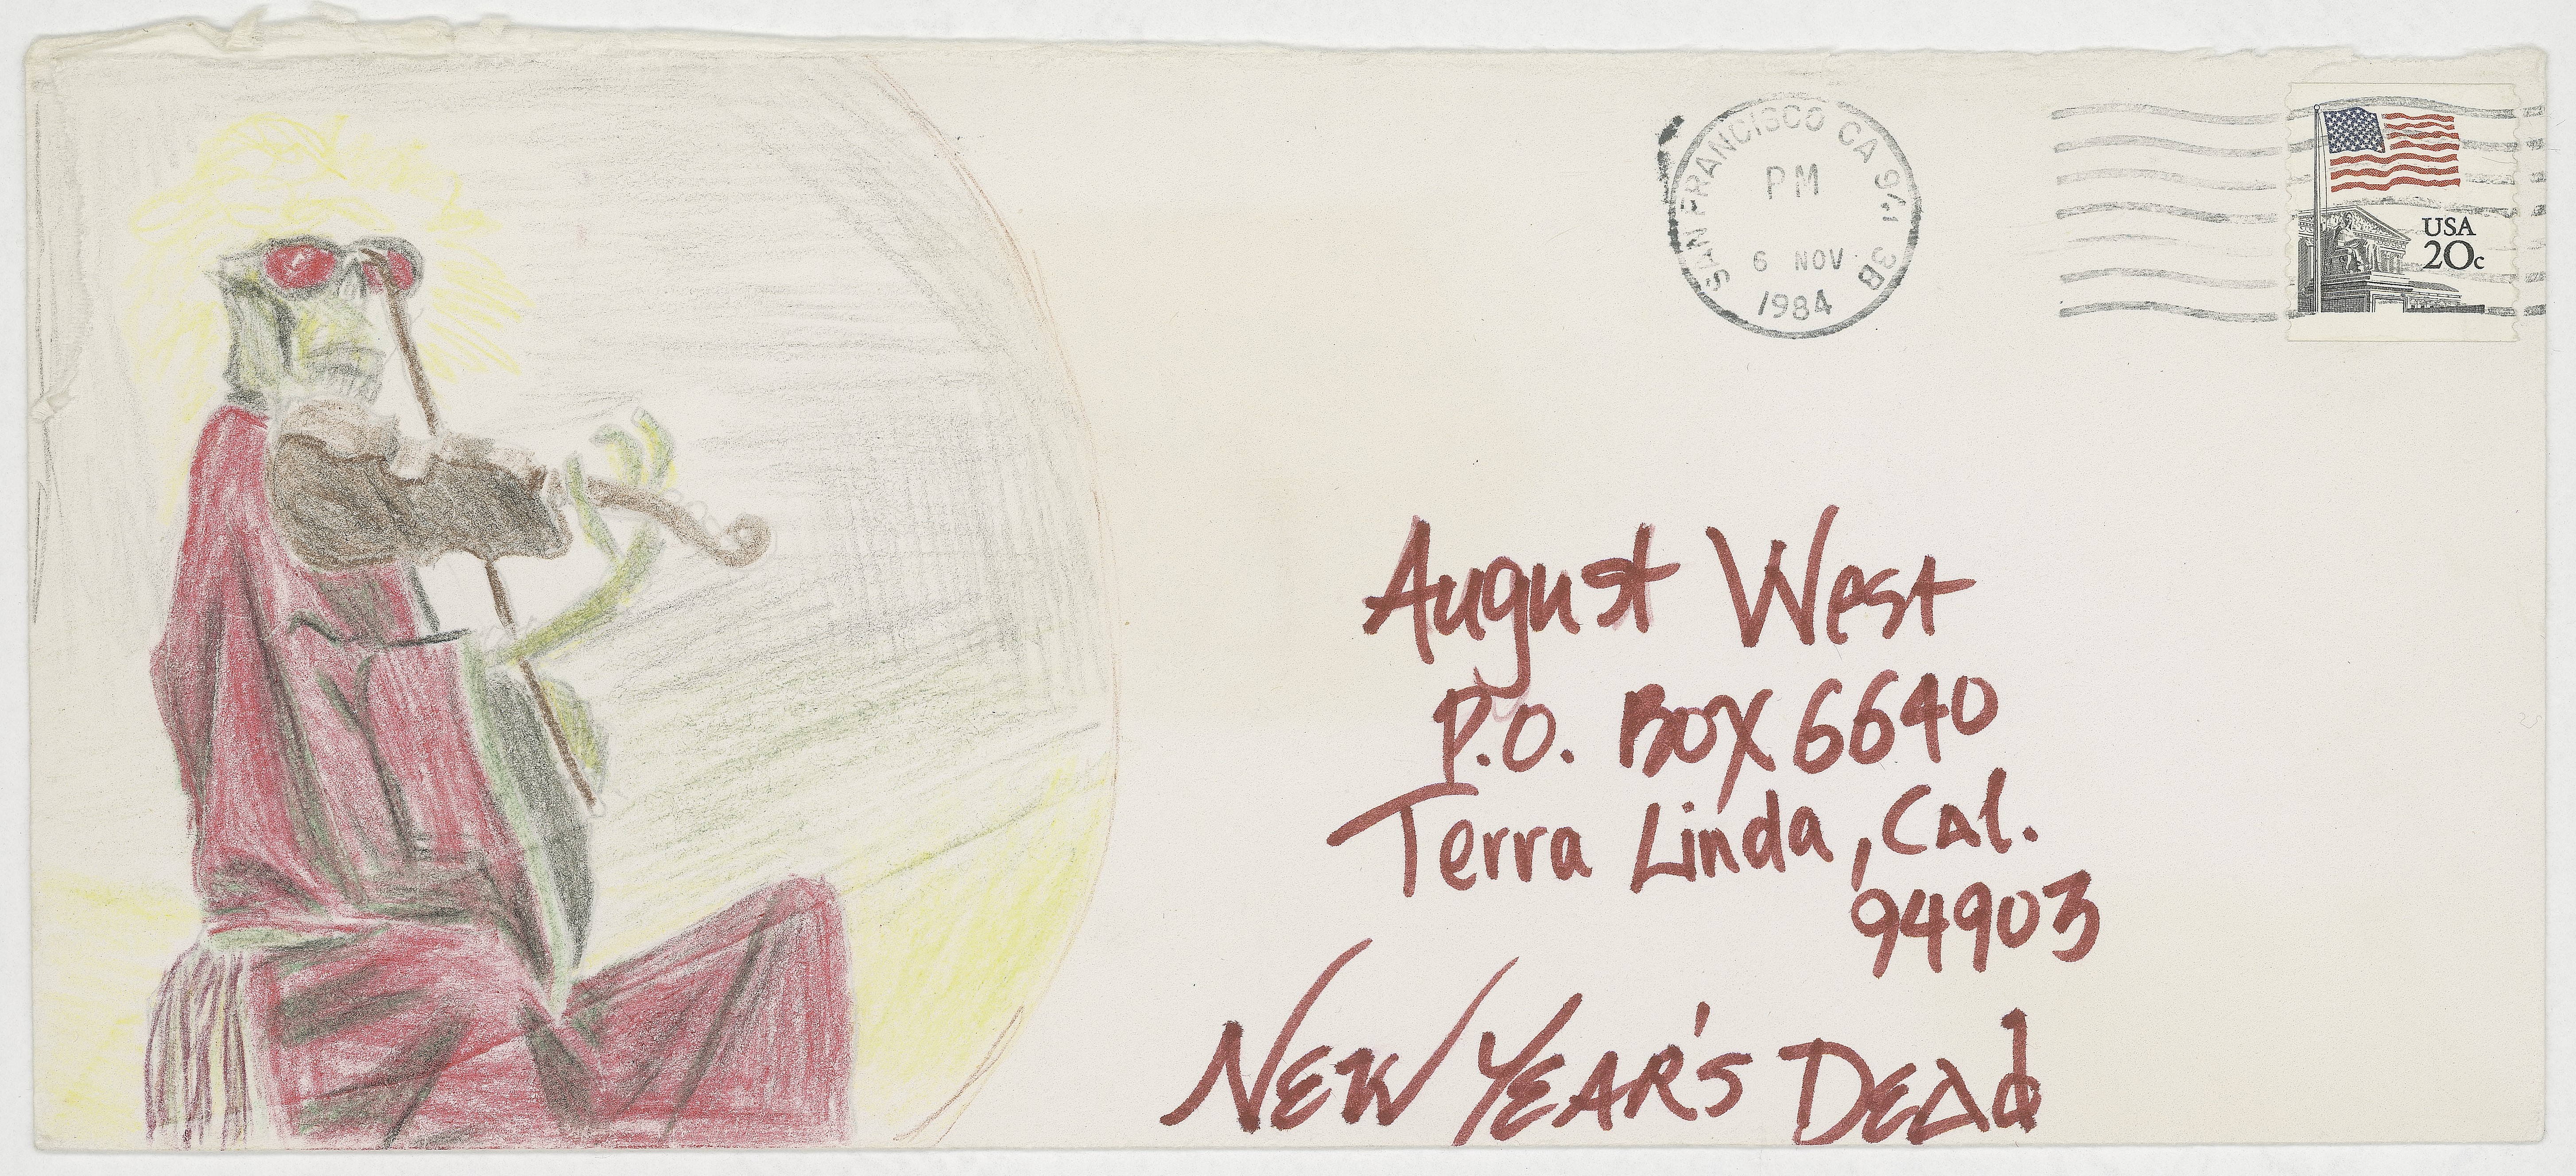 SAN FRANCISCO CA 941 3B
PM
6 NOV
1984
USA
20c
August West
P.O. Box 6640
Terra Linda, Cal.
94903
NEW YEAR'S DEAd